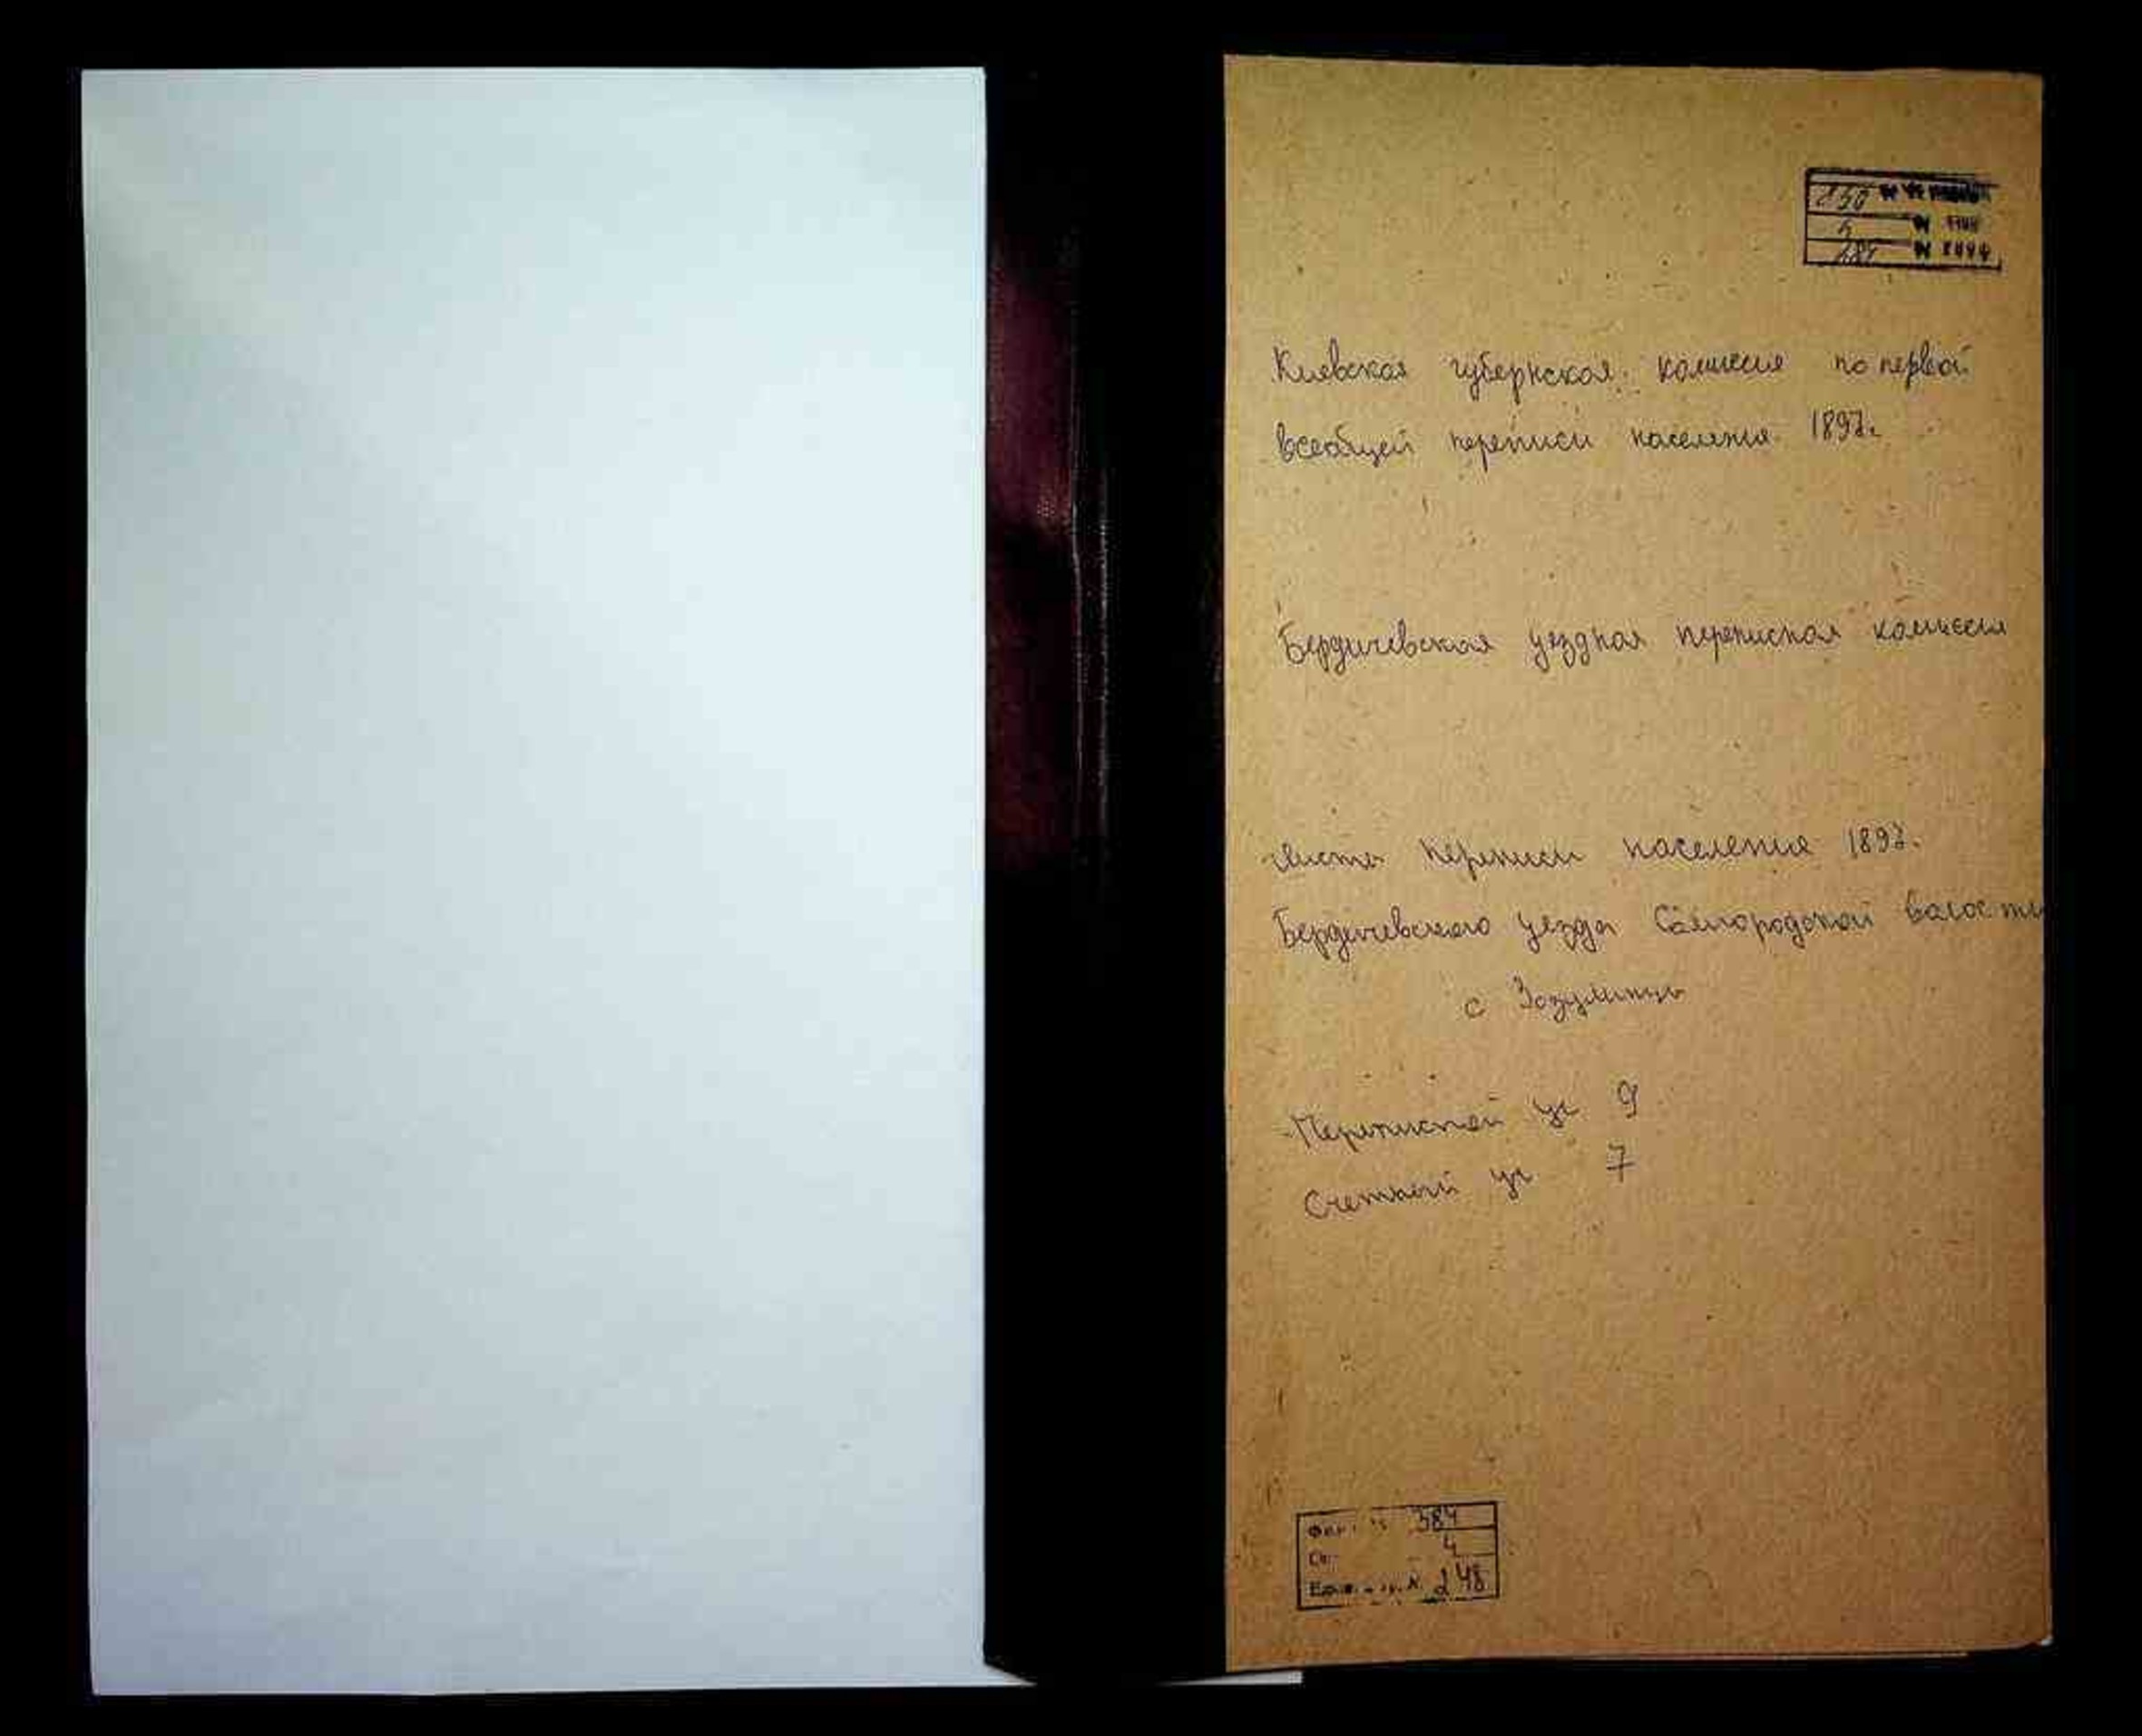 Киевская губернская комиссия по первой
всеобщей переписи населения 1897г.
Бердичевская уездная переписная комиссия
Листы переписи населения 1897.
Бердичевского уезда Самгородской волости
с Зозулинцы
Переписной уч 9
Счетный уч 7
384
4
248